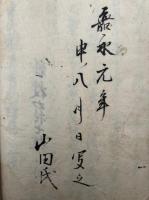 嘉永元年
申八月日写之
山田氏